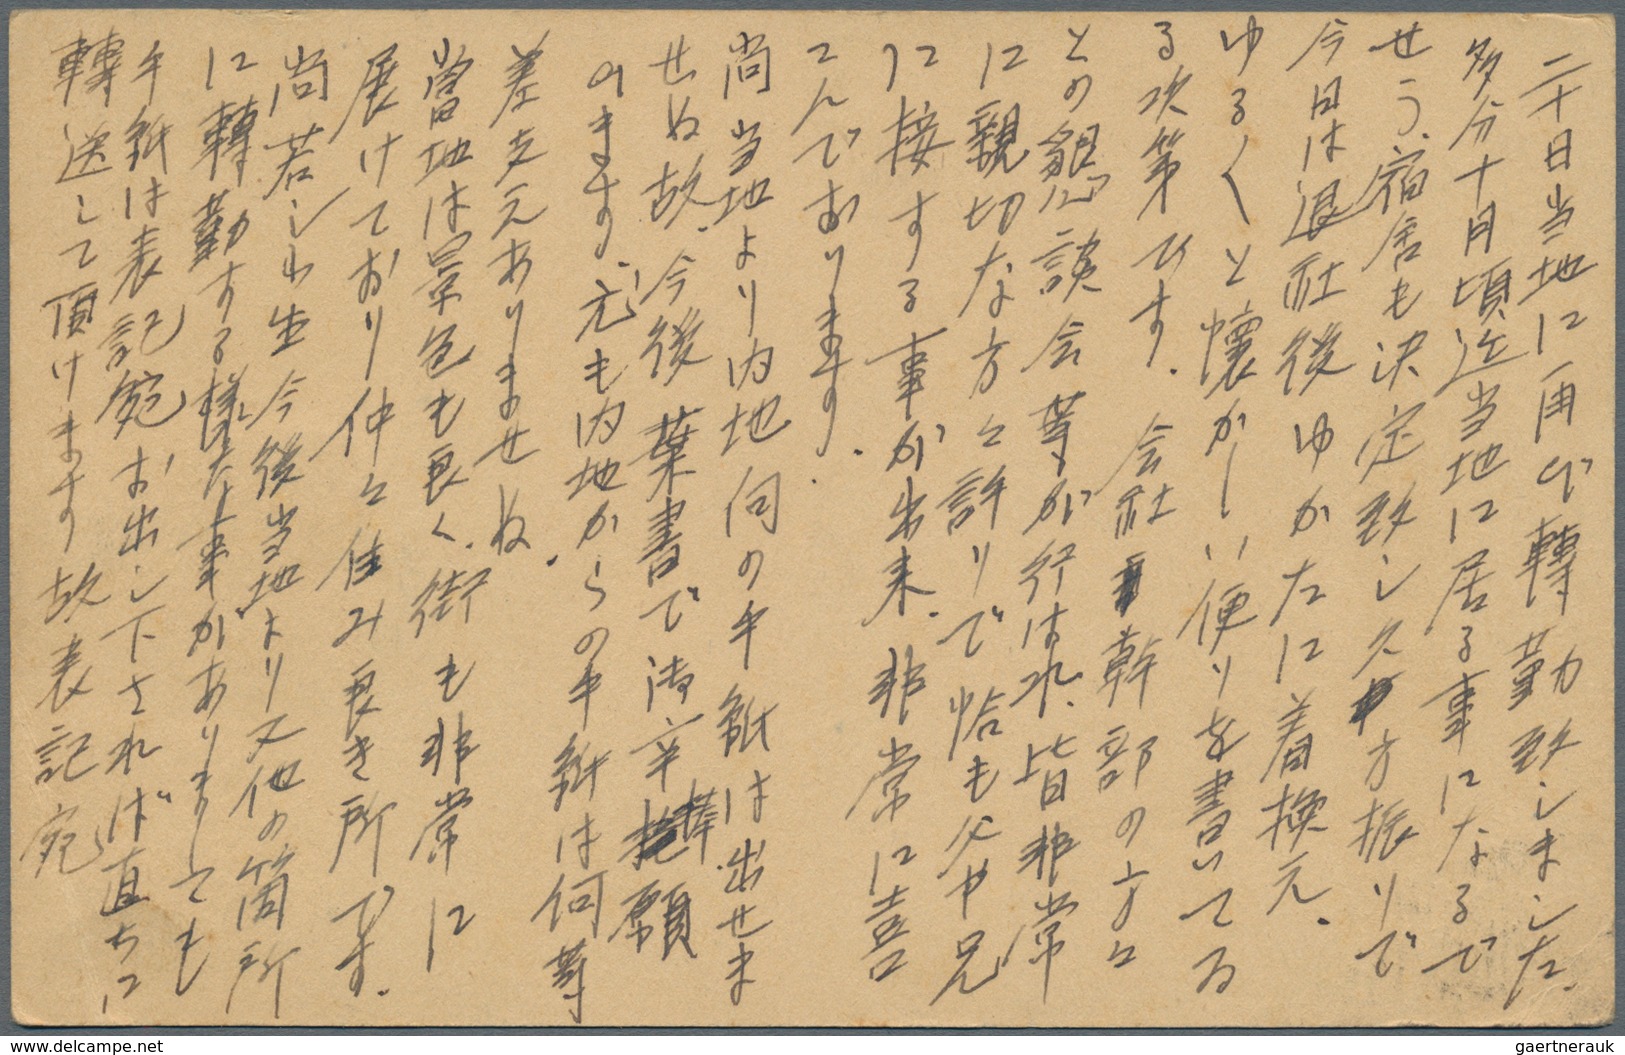 二十日当地に再び轉勤致しました。
多分十月頃迄当地に居る事になるで
せう、宿舎も決定致し久方振りで
今日は退社後ゆかたに着換え、
ゆるくと懐かしい便りを書いてゐ
る次第です。会社幹部の方々
との懇談会等が行はれ、皆非常
に親切な方々許りで恰も父や兄
に接する事が出来、非常に喜
こんでおります。
尚当地より内地向の手紙は出せま
せぬ故、今後葉書で御辛棒願
のます。尤も内地からの手紙は何等
差支えありませぬ。
當地は景色も良く、街も非常に
展けており仲々住み良き所です。
尚若しれ生今後当地より又他の箇所
に轉勤する様な事がありましても
手紙は表記宛お出し下されば直ちに
轉送して頂けます故表記宛
www.delcampe.net
gaertnerauk